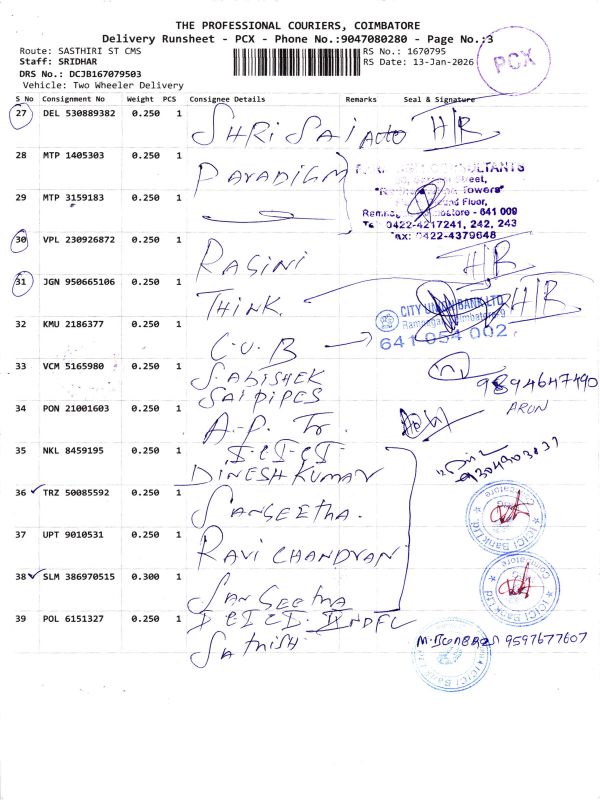 THE PROFESSIONAL COURIERS, COIMBATORE
Delivery Runsheet - PCX - Phone No.:9047080280 - Page No.:3
Route: SASTHIRI ST CMS RS No.: 1670795
Staff: SRIDHAR RS Date: 13-Jan-2026
DRS No.: DCJB167079503
Vehicle: Two Wheeler Delivery
PCX
S No Consignment No Weight PCS Consignee Details Remarks Seal & Signature
27 DEL 530889382 0.250 1 SHRI SAI Auto H/R
28 MTP 1405303 0.250 1 PARADIGM
29 MTP 3159183 0.250 1
SULTANTS
Street,
Towers"
Floor,
641 009
0422-4217241, 242, 243
0422-4379648
30 VPL 230926872 0.250 1 RAGINI H/R
31 JGN 950665106 0.250 1 THINK H/R
32 KMU 2186377 0.250 1 C.U.B
CITY UNION BANK LTD
641 054 002
33 VCM 5165980 0.250 1 S. ABISHEK
SAI PIPES
9894647490
34 PON 21001603 0.250 1 A.P. Tr.
ARUN
35 NKL 8459195 0.250 1 I.C.I.C.I
DINESH KUMAR
36 TRZ 50085592 0.250 1 SANGEETHA.
ICICI Bank Ltd
Coimbatore
37 UPT 9010531 0.250 1 RAVI CHANDRAN
38 SLM 386970515 0.300 1 SANGEETHA
ICICI Bank Ltd
39 POL 6151327 0.250 1 I C I C I
SATHISH
9597677607
ICICI Bank Ltd